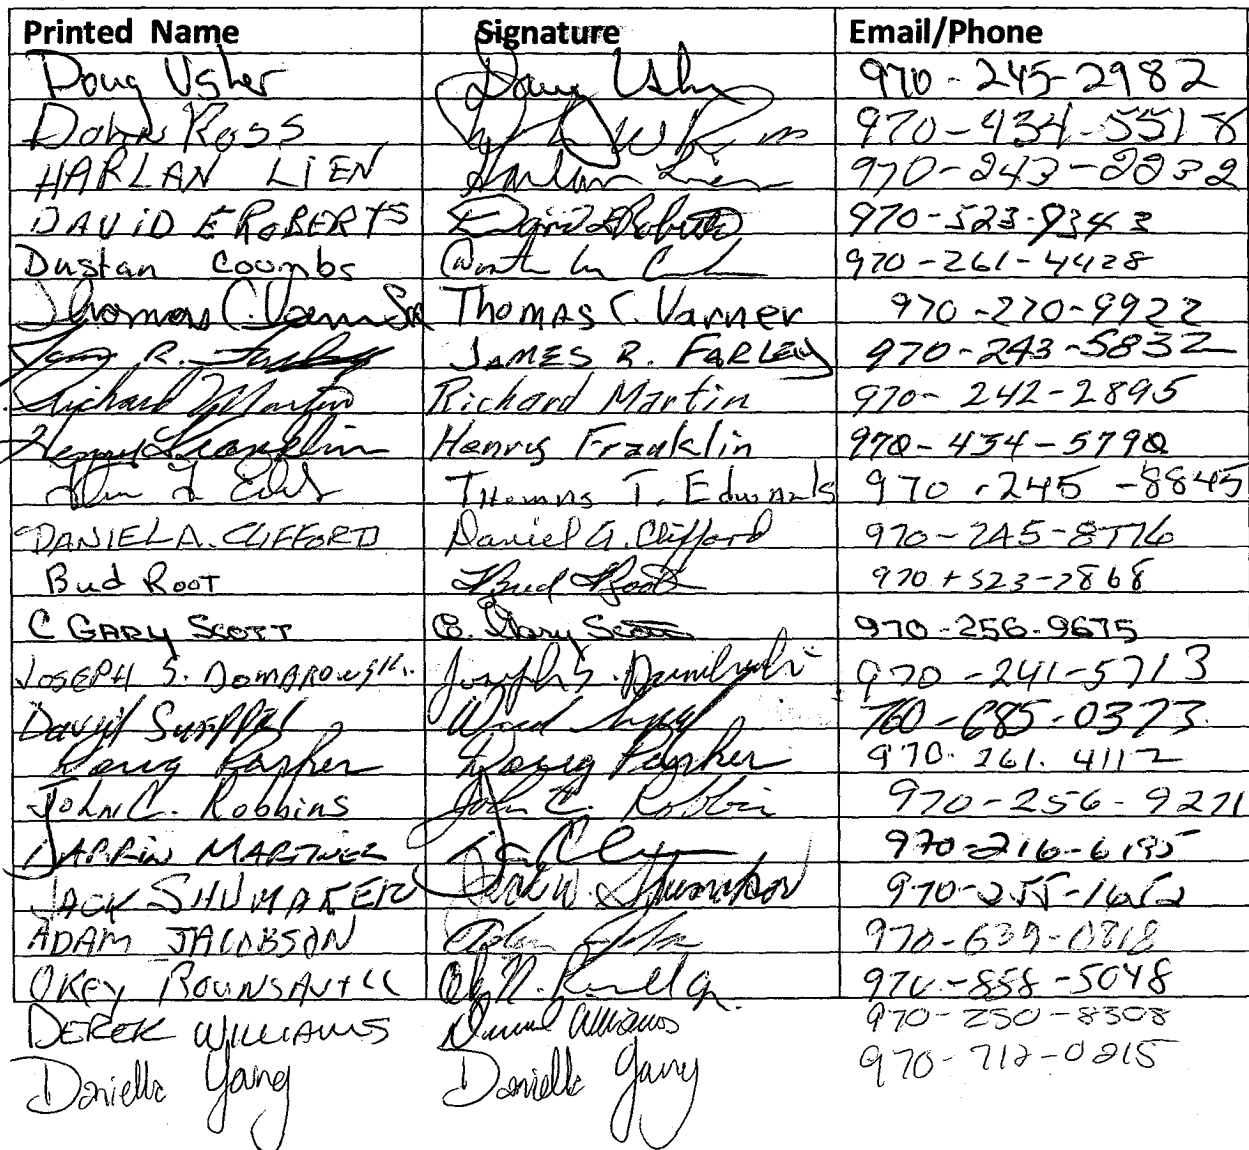 Printed Name Signature Email/Phone
Doug Usher Doug Usher 970-245-2982
Ross 970-434-5518
HARLAN LIEN Harlan Lien 970-243-2232
DAVID E ROBERTS David E Roberts 970-523-9343
Dustan Coombs 970-261-4428
Thomas C. Varner Sr Thomas C. Varner 970-270-9922
James R. Farley JAMES R. FARLEY 970-243-5832
Richard Martin Richard Martin 970-242-2895
Henry Franklin Henry Franklin 970-434-5790
Thomas T. Edwards 970-245-8845
DANIEL A. CLIFFORD Daniel A. Clifford 970-245-8776
Bud Root Bud Root 970+523-2868
C GARY SCOTT C. Gary Scott 970-256-9675
JOSEPH S. Joseph S. 970-241-5713
David 760-685-0373
Doug Doug 970-261.4112
John C. Robbins John C. Robbin 970-256-9271
DARRIN MARTINEZ 970-216-6195
JACK SHUMAKER Jack W. Shumaker
ADAM JACOBSON Adam 970-639-0818
OKEY 970-858-5048
DEREK WILLIAMS Williams 970-250-8308
Danielle Yang Danielle 970-712-0215